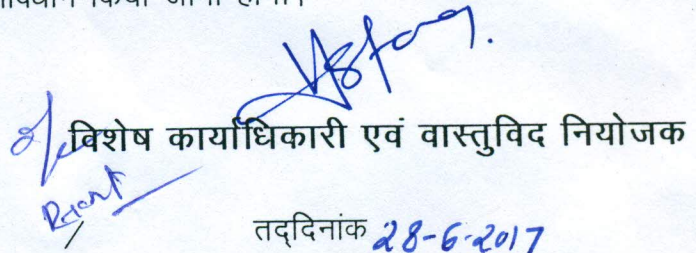 किया जाना होगा।
विशेष कार्याधिकारी एवं वास्तुविद नियोजक
तद्दिनांक 28-6-2017